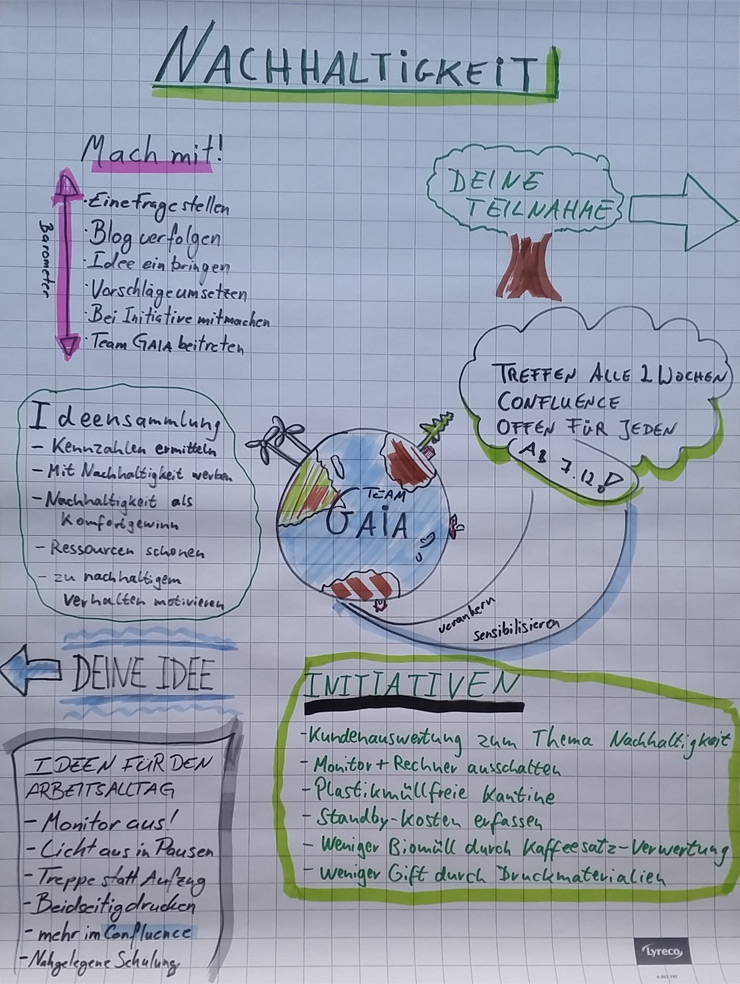 NACHHALTIGKEIT
Mach mit!
Barometer
· Eine Frage stellen
· Blog verfolgen
· Idee einbringen
· Vorschläge umsetzen
· Bei Initiative mitmachen
· Team GAIA beitreten
DEINE
TEILNAHME
TREFFEN ALLE 2 WOCHEN
CONFLUENCE
OFFEN FÜR JEDEN
AB 7.12.
Ideensammlung
- Kennzahlen ermitteln
- Mit Nachhaltigkeit werben
- Nachhaltigkeit als
Komfortgewinn
- Ressourcen schonen
- zu nachhaltigem
Verhalten motivieren
TEAM
GAIA
verankern
sensibilisieren
DEINE IDEE
INITIATIVEN
- Kundenauswertung zum Thema Nachhaltigkeit
- Monitor + Rechner ausschalten
- Plastikmüllfreie Kantine
- Standby-Kosten erfassen
- Weniger Biomüll durch Kaffeesatz-Verwertung
- Weniger Gift durch Druckmaterialien
IDEEN FÜR DEN
ARBEITSALLTAG
- Monitor aus!
- Licht aus in Pausen
- Treppe statt Aufzug
- Beidseitig drucken
- mehr im Confluence
- Nahgelegene Schulung
Lyreco